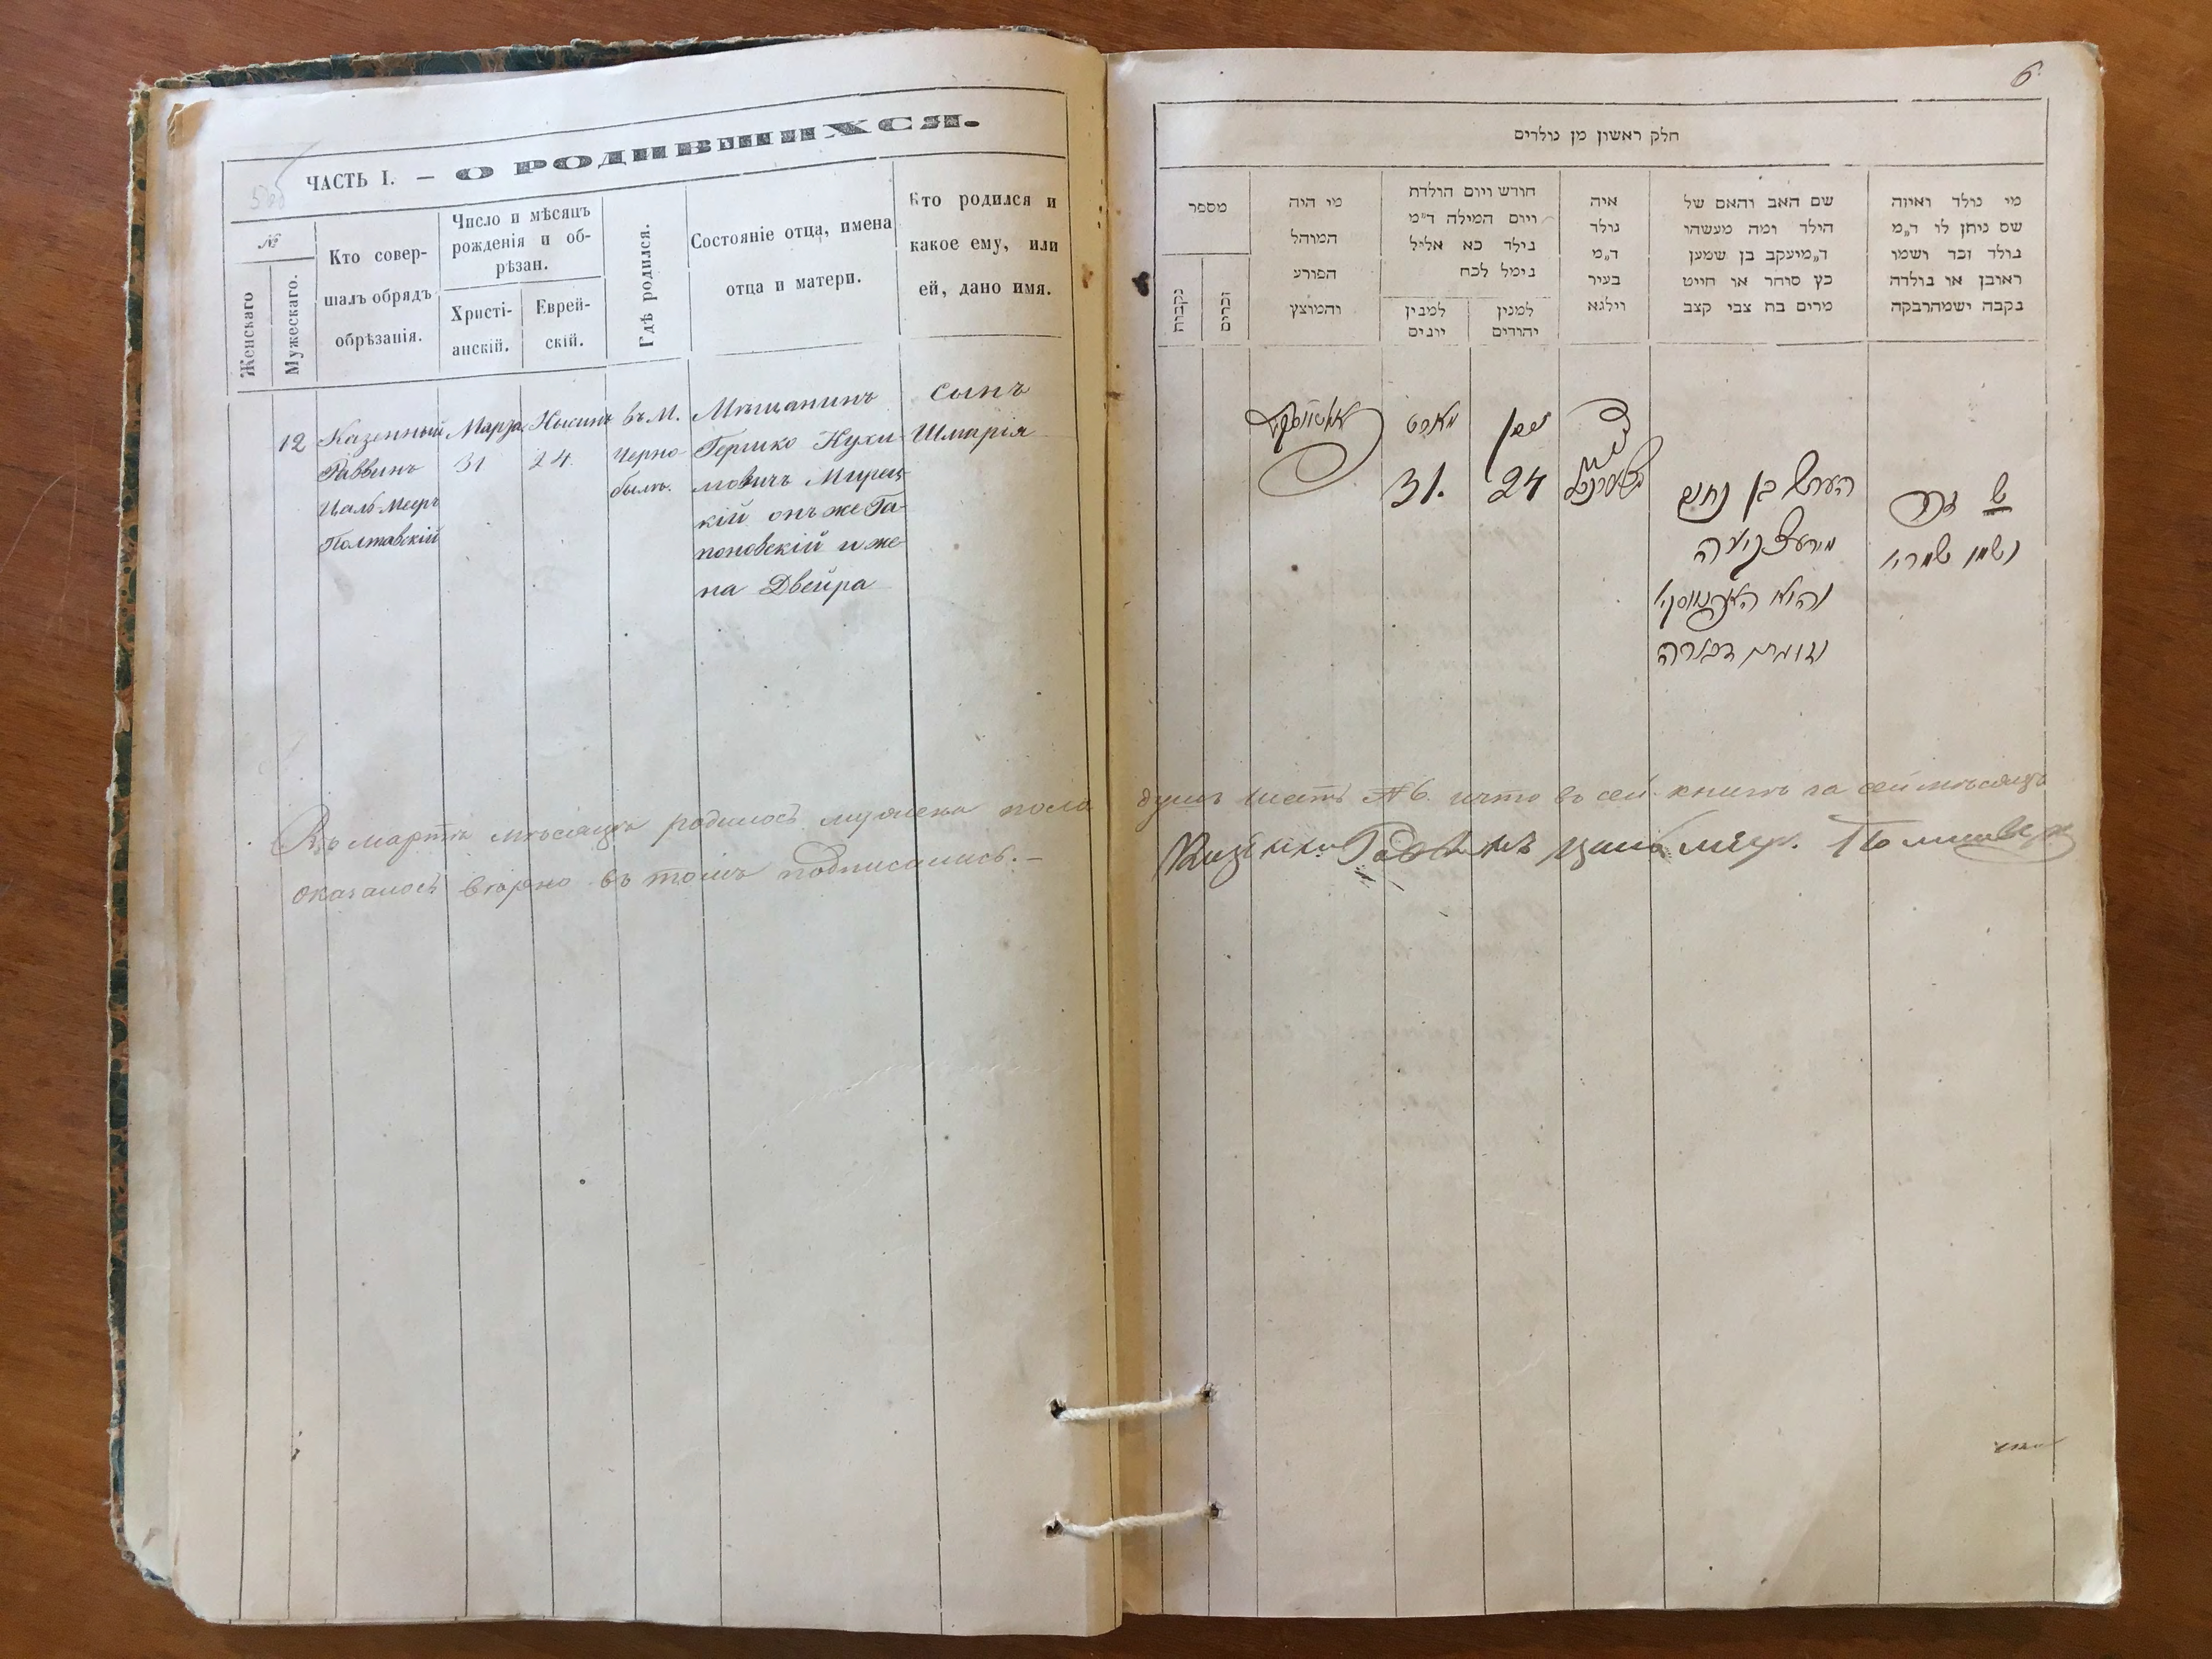 ЧАСТЬ I. — О РОДИВШИХСЯ.
№
Женскаго
Мужескаго.
Кто совер-
шалъ обрядъ
обрѣзанія.
Число и мѣсяцъ
рожденія и об-
рѣзан.
Христі-
анскій.
Еврей-
скій.
Гдѣ родился.
Состояніе отца, имена
отца и матери.
Кто родился и
какое ему, или
ей, дано имя.
12
Казенный
Раввинъ
Цаль Мееръ
Полтавскій
Марта
31
Нысинъ
24
въ М.
Черно-
былѣ.
Мѣщанинъ
Гершко Нухи-
мовичъ Мирец-
кій онъ же Га-
поновскій и же-
на Двейра
сынъ
Шмарія
Въ мартѣ мѣсяцѣ родилось мужеска пола
оказалось вѣрно въ томъ подписались. —
6
חלק ראשון מן נולדים
מספר
נקבות
זכרים
מי היה
המוהל
הפורע
והמוצץ
חודש ויום הולדת
ויום המילה ד״מ
נילד כא אליל
נימל לכח
למנין
יונים
למנין
יהודים
איה
נולד
ד״מ
בעיר
וילנא
שם האב והאם של
הילד ומה מעשהו
ד״מ יעקב בן שמען
כץ סוחר או חייט
מרים בת צבי קצב
מי נולד ואיזה
שם ניתן לו ד״מ
נולד זכר ושמו
ראובן או נולדה
נקבה ישמהרבקה
מארט
31.
ניסן
24
הערש בן נחום
והוא
דבורה
זכר
ושמו שמריי
душъ шесть № 6. и что въ сей книгѣ за сей мѣсяцъ
Казенный Раввинъ Цаль Меер. Полтавскій